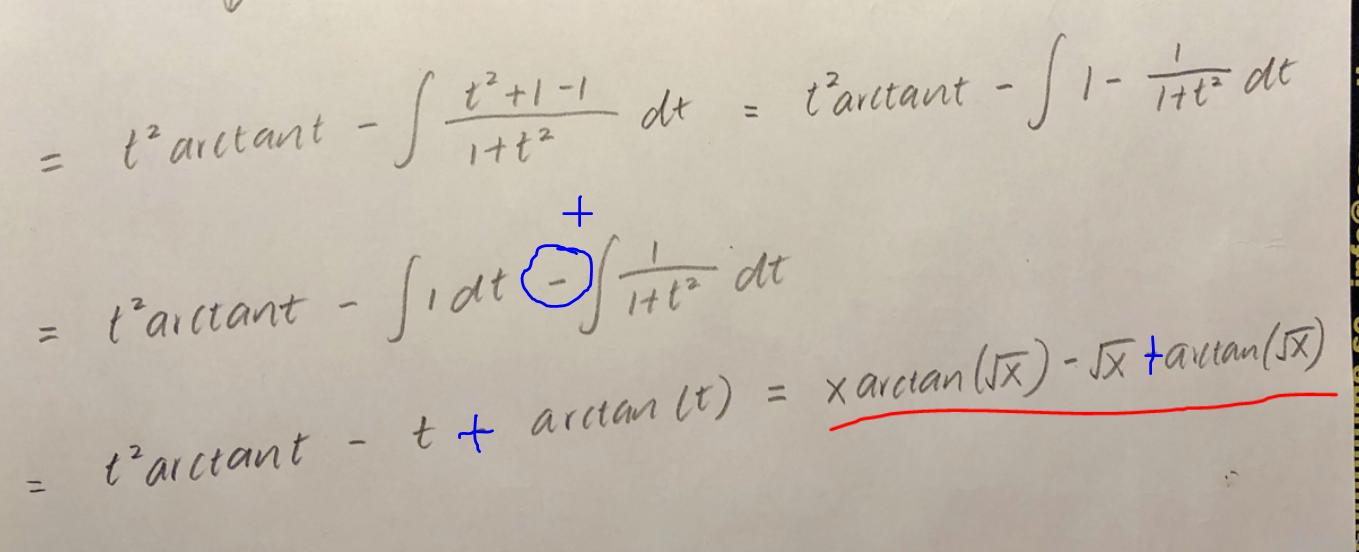 = t² arctant - ∫ (t²+1-1)/(1+t²) dt = t² arctant - ∫ 1 - 1/(1+t²) dt
+
= t² arctant - ∫ 1 dt - ∫ 1/(1+t²) dt
= t² arctant - t + arctan(t) = x arctan(√x) - √x + arctan(√x)